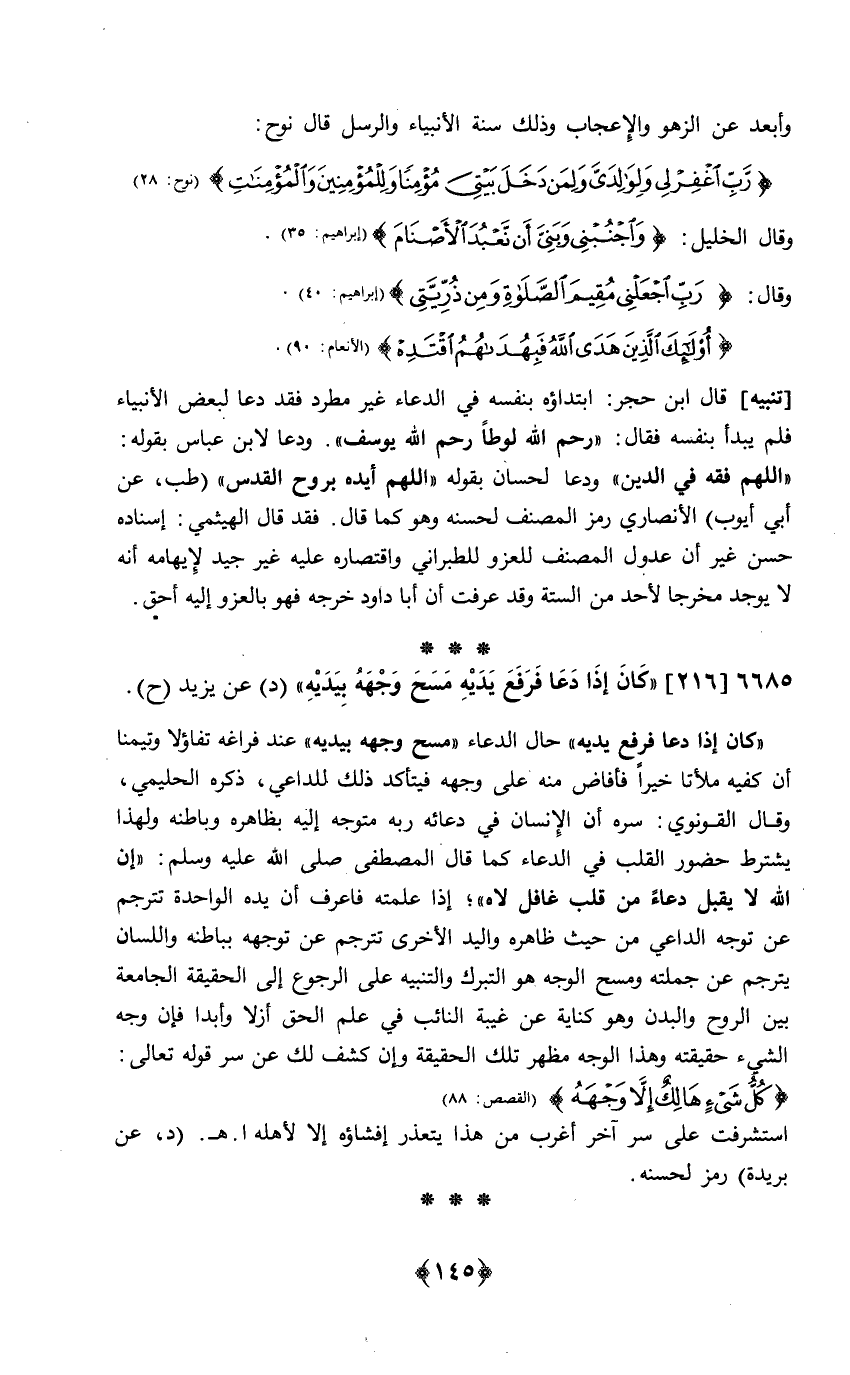 وأبعد عن الزهو والإعجاب وذلك سنة الأنبياء والرسل قال نوح:
﴿ رَّبِّ ٱغْفِرْ لِى وَلِوَٰلِدَىَّ وَلِمَن دَخَلَ بَيْتِىَ مُؤْمِنًا وَلِلْمُؤْمِنِينَ وَٱلْمُؤْمِنَٰتِ ﴾ (نوح: ٢٨)
وقال الخليل: ﴿ وَٱجْنُبْنِى وَبَنِىَّ أَن نَّعْبُدَ ٱلْأَصْنَامَ ﴾ (إبراهيم: ٣٥) .
وقال: ﴿ رَبِّ ٱجْعَلْنِى مُقِيمَ ٱلصَّلَوٰةِ وَمِن ذُرِّيَّتِى ﴾ (إبراهيم: ٤٠) .
﴿ أُوْلَٰٓئِكَ ٱلَّذِينَ هَدَى ٱللَّهُ فَبِهُدَىٰهُمُ ٱقْتَدِهْ ﴾ (الأنعام: ٩٠) .
[تنبيه] قال ابن حجر: ابتداؤه بنفسه في الدعاء غير مطرد فقد دعا لبعض الأنبياء
فلم يبدأ بنفسه فقال: «رحم الله لوطاً رحم الله يوسف». ودعا لابن عباس بقوله:
«اللهم فقه في الدين» ودعا لحسان بقوله «اللهم أيده بروح القدس» (طب، عن
أبي أيوب) الأنصاري رمز المصنف لحسنه وهو كما قال. فقد قال الهيثمي: إسناده
حسن غير أن عدول المصنف للعزو للطبراني واقتصاره عليه غير جيد لإيهامه أنه
لا يوجد مخرجا لأحد من الستة وقد عرفت أن أبا داود خرجه فهو بالعزو إليه أحق.
* * *
٦٦٨٥ [٢١٦] «كَانَ إِذَا دَعَا فَرَفَعَ يَدَيْهِ مَسَحَ وَجْهَهُ بِيَدَيْهِ» (د) عن يزيد (ح).
«كان إذا دعا فرفع يديه» حال الدعاء «مسح وجهه بيديه» عند فراغه تفاؤلا وتيمنا
أن كفيه ملأتا خيراً فأفاض منه على وجهه فيتأكد ذلك للداعي، ذكره الحليمي،
وقال القونوي: سره أن الإنسان في دعائه ربه متوجه إليه بظاهره وباطنه ولهذا
يشترط حضور القلب في الدعاء كما قال المصطفى صلى الله عليه وسلم: «إن
الله لا يقبل دعاءً من قلب غافل لاه»؛ إذا علمته فاعرف أن يده الواحدة تترجم
عن توجه الداعي من حيث ظاهره واليد الأخرى تترجم عن توجهه بباطنه واللسان
يترجم عن جملته ومسح الوجه هو التبرك والتنبيه على الرجوع إلى الحقيقة الجامعة
بين الروح والبدن وهو كناية عن غيبة النائب في علم الحق أزلا وأبدا فإن وجه
الشيء حقيقته وهذا الوجه مظهر تلك الحقيقة وإن كشف لك عن سر قوله تعالى:
﴿ كُلُّ شَىْءٍ هَالِكٌ إِلَّا وَجْهَهُۥ ﴾ (القصص: ٨٨)
استشرفت على سر آخر أغرب من هذا يتعذر إفشاؤه إلا لأهله ا.هـ. (د، عن
بريدة) رمز لحسنه.
* * *
﴿١٤٥﴾